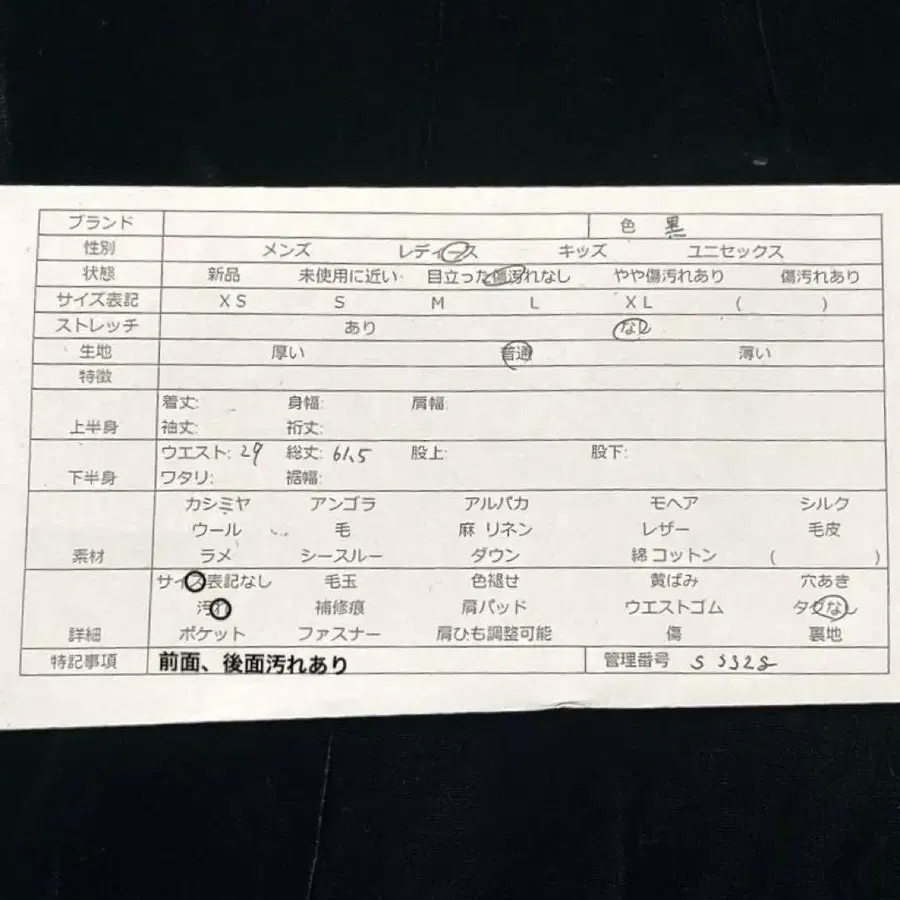 ブランド 色 黒
性別 メンズ レディース キッズ ユニセックス
状態 新品 未使用に近い 目立った傷汚れなし やや傷汚れあり 傷汚れあり
サイズ表記 XS S M L XL ( )
ストレッチ あり なし
生地 厚い 普通 薄い
特徴
着丈: 身幅: 肩幅
上半身 袖丈: 裄丈:
ウエスト: 29 総丈: 61.5 股上: 股下:
下半身 ワタリ: 裾幅:
カシミヤ アンゴラ アルパカ モヘア シルク
ウール 毛 麻 リネン レザー 毛皮
素材 ラメ シースルー ダウン 綿 コットン ( )
サイズ表記なし 毛玉 色褪せ 黄ばみ 穴あき
汚れ 補修痕 肩パッド ウエストゴム タグなし
詳細 ポケット ファスナー 肩ひも調整可能 傷 裏地
特記事項 前面、後面汚れあり 管理番号